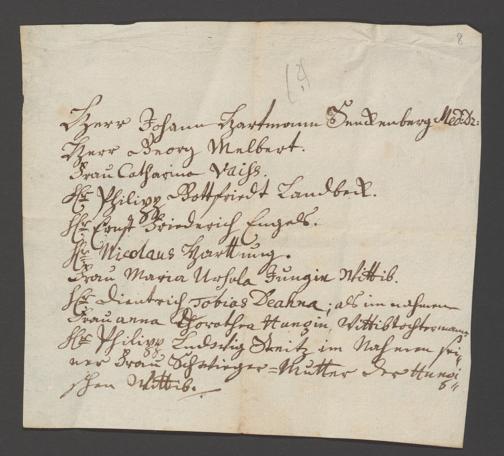 8
Herr Johann Hartmann Senckenberg Med: Dr:
Herr Georg Melbert.
Frau Catharina Vaihs.
Hr Philipp Gottfriedt Landbeck.
Hr Ernst Friederich Engels.
Hr Nicolaus Harttung.
Frau Maria Urhsla Jungin Wittib.
Hr Dientrich Tobias Deahna; als im nahmen
Frau anna Dorothea Hungin, Wittib tochtermann
Hr Philipp Ludwig Steitz im Nahmen sei-
ner Frau Schwieger=Mutter der Hungi
schen Wittib.